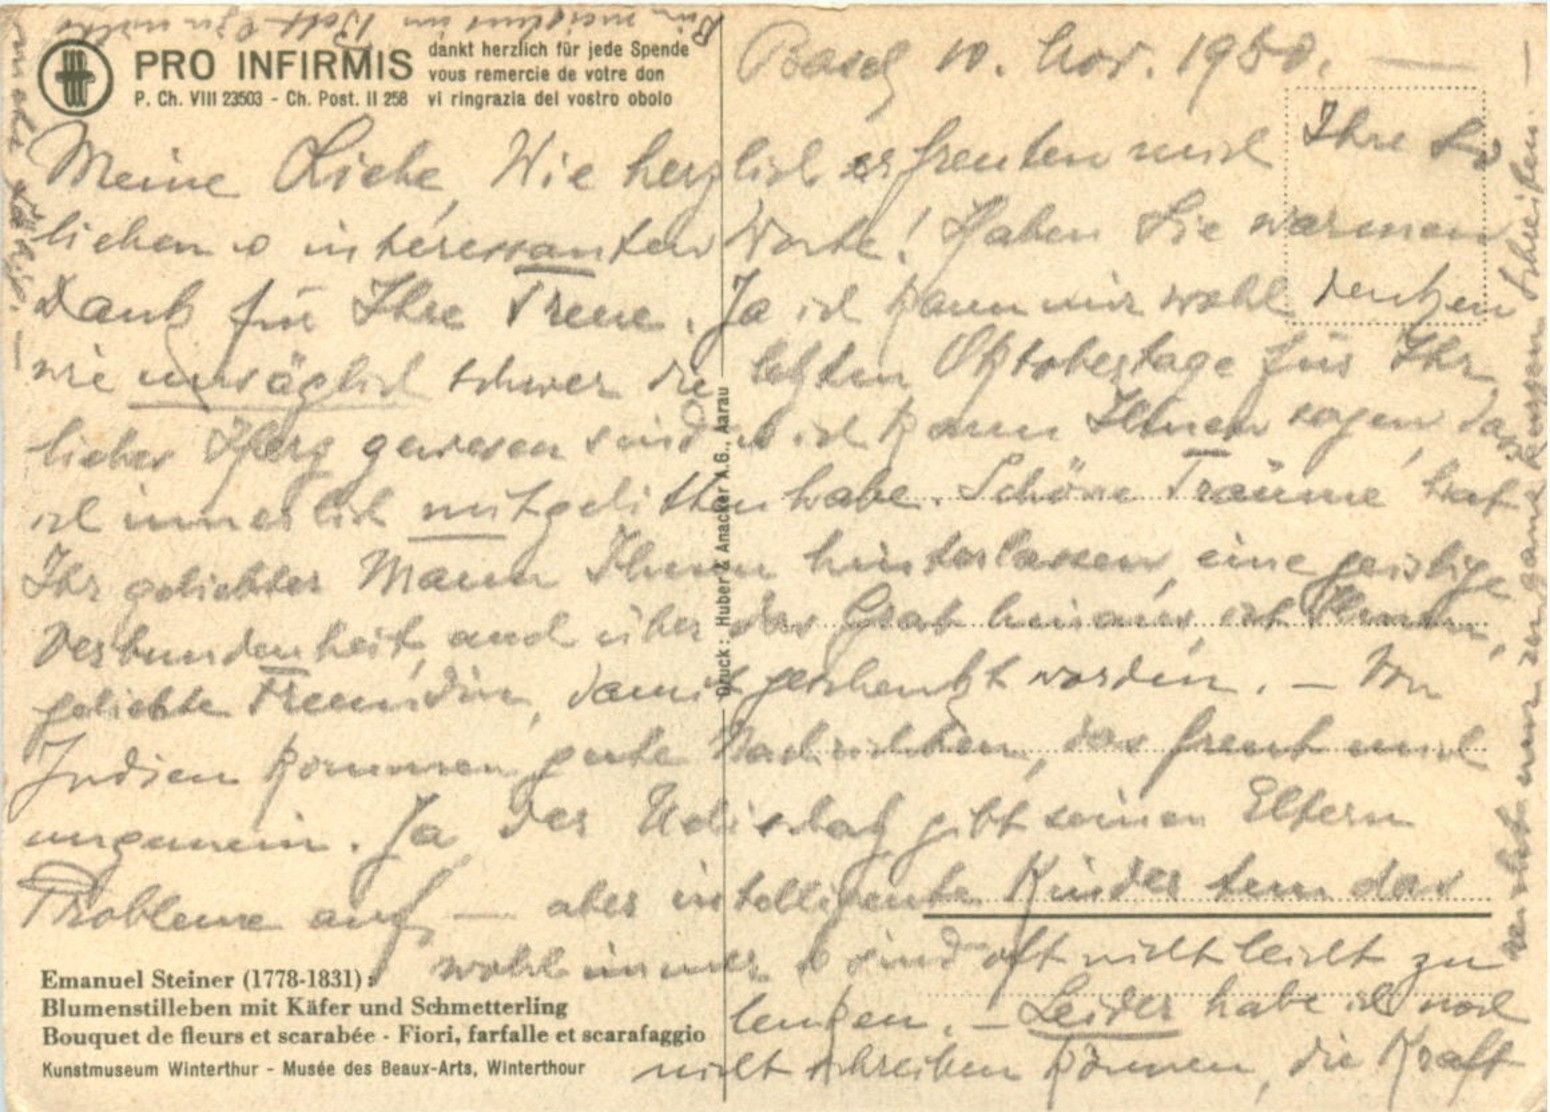 PRO INFIRMIS
P. Ch. VIII 23503 - Ch. Post. II 258
dankt herzlich für jede Spende
vous remercie de votre don
vi ringrazia del vostro obolo
Basel 10. Nov. 1950. —
Meine Liebe, Wie herzlich erfreuten mich Ihre
lieben u intéressanten Worte! Haben Sie warmen
Dank für Ihre Treue. Ja ich kann mir wohl denken
wie unsäglich schwer die letzten Oktobertage für Ihr
liebes Herz gewesen sind u ich kann Ihnen sagen, dass
ich innerlich mitgelitten habe. Schöne Träume hat
Ihr geliebter Mann Ihnen hinterlassen, eine geistige
Verbundenheit, auch über das Grab hinaus, ist Ihnen,
geliebte Freundin, damit geschenkt worden. — Von
Indien kommen gute Nachrichten, das freut mich
ungemein. Ja der gibt seinen Eltern
Probleme auf, — aber intelligente Kinder tun das
wohl immer u sind oft nicht leicht zu
lenken. — Leider habe ich noch
nicht schreiben können, die Kraft
nun zu ganz kurzem Schreiben. —
Bin meistens im Bett
Emanuel Steiner (1778-1831):
Blumenstilleben mit Käfer und Schmetterling
Bouquet de fleurs et scarabée - Fiori, farfalle et scarafaggio
Kunstmuseum Winterthur - Musée des Beaux-Arts, Winterthour
Druck: Huber & Anacker A.G., Aarau